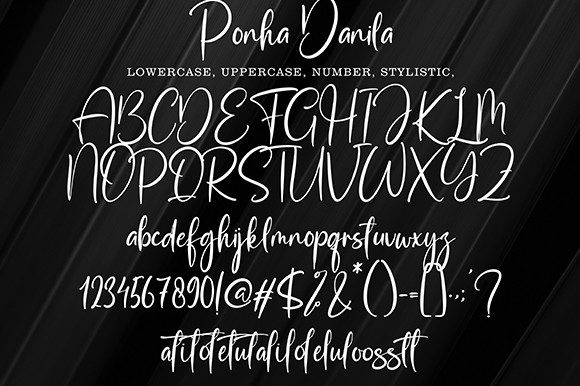 Ponha Danila
LOWERCASE, UPPERCASE, NUMBER, STYLISTIC,
ABCDEFGHIJKLM
NOPQRSTUVWXYZ
abcdefghijklmnopqrstuvwxyz
1234567890!@#$%&*()-={}..,;'?